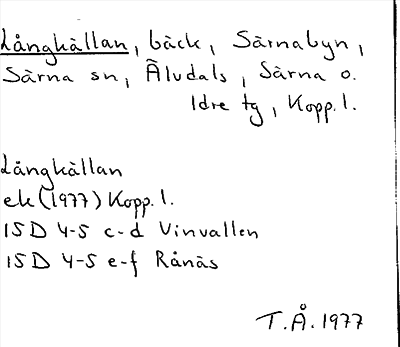 Långkällan, bäck, Särnabyn,
Särna sn, Älvdals, Särna o.
Idre tg, Kopp. l.
Långkällan
ek (1977) Kopp. l.
15D 4-5 c-d Vinvallen
15D 4-5 e-f Rånäs
T.Å. 1977